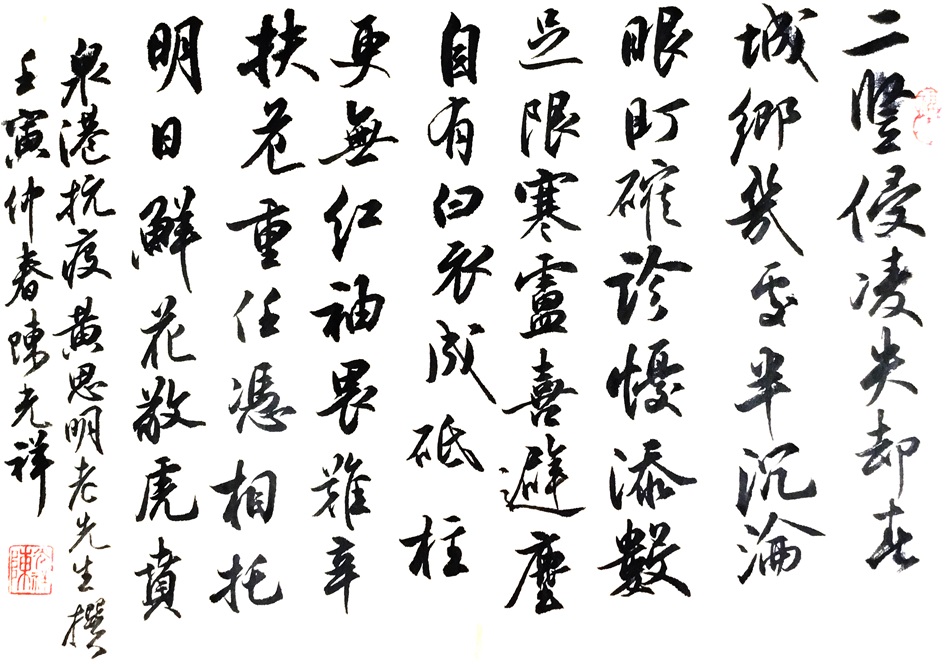 二豎侵凌失却春
城鄉幾處半沉淪
眼盯確診懮添數
足限寒盧喜避塵
自有白衣成砥柱
更無紅袖畏難辛
扶危重任憑相托
明日鮮花敬虎墳
泉港抗疫黃思明老先生撰
壬寅仲春陳光祥